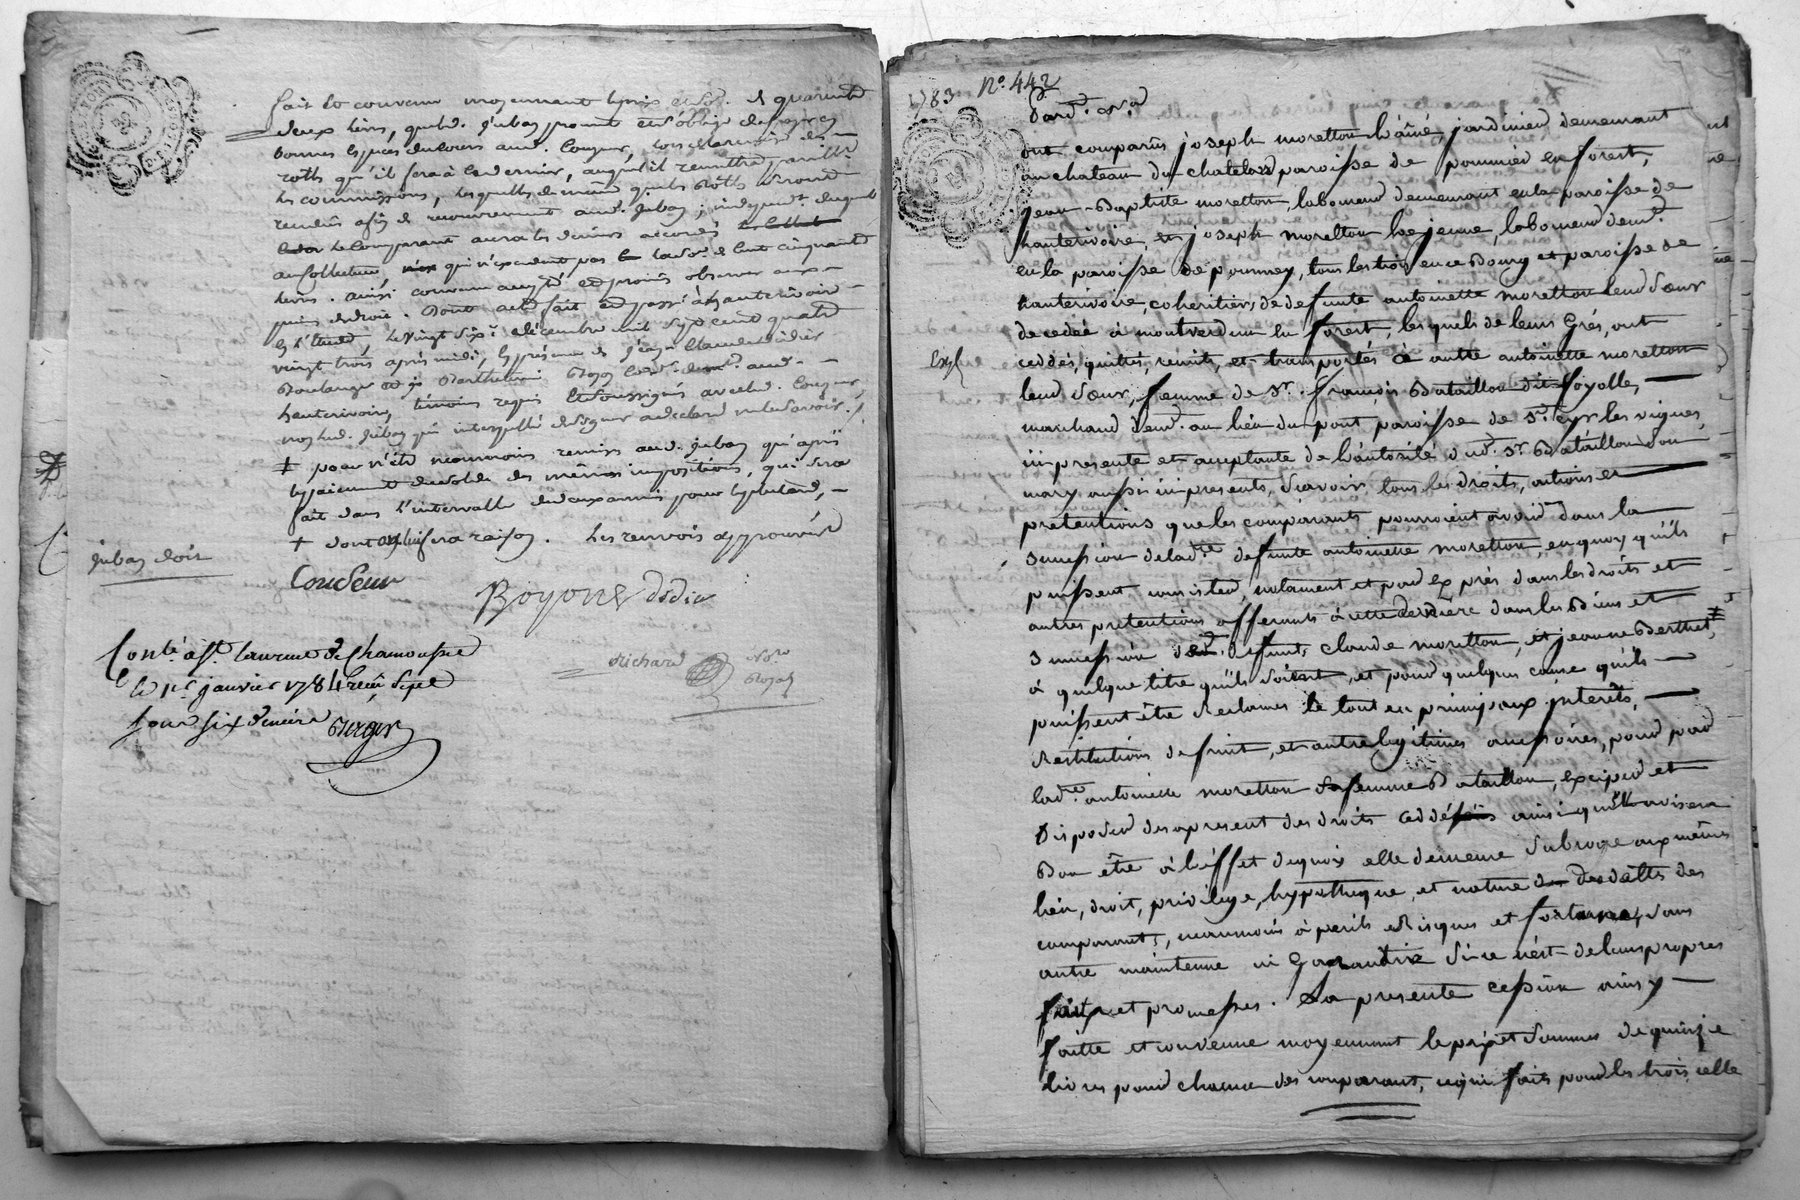 fait et convenu moyennant le prix et so.e de quarante
deux livres, que led. jubas promet et s'oblige de payer en
bonnes especes du cours aud. Couzeur, lors
rolle qu'il sera à ce dernier, auquel il remettra
les commissions, lesquelles de même que les Rolles seront
rendus afin de recouvrement aud. jubas;
le Comparant aura les deniers accordés
au Collecteur qui n'excedent pas la so.e de Cent cinquante
livres. ainsi convenu accepté et promis observer aux
peines de droit. Dont acte fait et passé à hauterivoire
en l'étude, le vingt six.e décembre mil sept cent quatre
vingt trois après midi, en présence de jean Claude didier
Boulanger et de Barthelemi Boyon demt. aud.
hauterivoire, témoins requis et soussignés avec led. Couzeur,
non led. jubas qui interpellé de signer a declaré ne le savoir.
‡ pour n'être neanmoins remises aud. jubas qu'après
le payement du solde des mêmes impositions, qui sera
fait dans l'intervalle de deux années pour le plus tard,
+ dont il lui sera raison. Les renvois approuvés
jubas doit
Couzeur
Boyon didier
Richard No.re Royal
Conlé à St. Laurent de Chamousset
le 1er janvier 1784 reçu Sept
sous six deniers Burger
1783 N.o 442
Pard.t &.a
ont comparûs joseph moretton l'aîné, jardinier demeurant
au chateau du chatelard paroisse de pommier en forest,
jean-Baptiste moretton, laboureur demeurant en la paroisse de
hauterivoire, et joseph moretton le jeune, laboureur demt.
en la paroisse de pommey, tous les trois en ce Bourg et paroisse de
hauterivoire, coheritiers de defunte antoinette moretton leur sœur
decedée à montverdun en forest, lesquels de leurs Grés, ont
Exp.
ceddés, quittés, remis, et transportés à autre antoinette moretton
leur sœur, femme de Sr. françois Bataillon dit foyolles,
marchand demt. au lieu du pont paroisse de St. Cyr les vignes,
ici presente et acceptante de l'autorité dud. Sr. Bataillon son
mary aussi ici present, Scavoir tous les droits, actions et
pretentions que les comparants pourroient avoir dans la
succession de lad.te defunte antoinette moretton, en quoy qu'ils
puissent consister, notament et pour exprès dans les droits et
autres pretentions afferants à cette derniere dans les Biens et
succession de defunts claude moretton, et jeanne Berthet, ‡
à quelque titre qu'ils soient, et pour quelques cause qu'ils
puissent être Reclamés le tout en principaux, interêts,
Restitutions de fruit, et autres legitimes accessoires, pour par
lad.te antoinette moretton femme Bataillon, exciper et
Disposer des apresent des droits ceddés ainsi qu'elle avisera
Bon être à l'effet de quoi elle demeure subrogée aux mêmes
lieu, droit, privilege, hypotheque, et nature de dattes des
comparants, neanmoins à perils Risques et fortunes, sans
autre maintenue ni Garantie si ce n'est de leurs propres
faits et promesses. La presente cession ainsy
faitte et convenue moyennant le prix et sommes de quinze
livres pour chacun des comparant, ce qui fait pour les trois celle